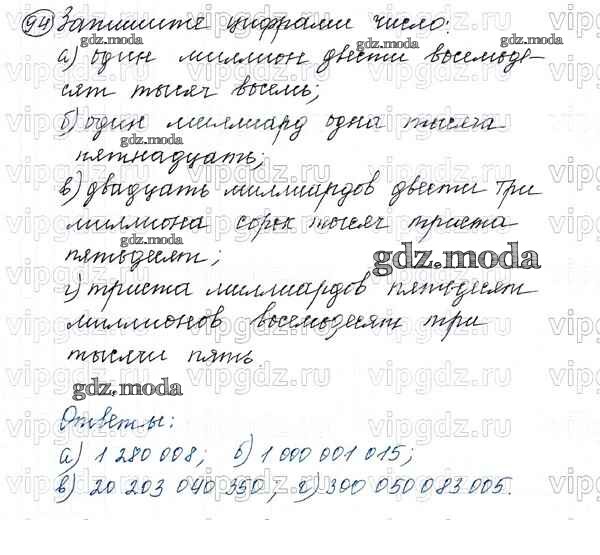 94 Запишите цифрами число:
gdz.moda gdz.moda
а) один миллион двести восемьде-
сят тысяч восемь;
gdz.moda
б) один миллиард одна тысяча
gdz.moda
пятнадцать;
в) двадцать миллиардов двести три
миллиона сорок тысяч триста
gdz.moda
пятьдесят;
gdz.moda
г) триста миллиардов пятьдесят
миллионов восемьдесят три
тысячи пять.
gdz.moda
Ответы:
а) 1 280 008; б) 1 000 001 015;
в) 20 203 040 350; г) 300 050 083 005.